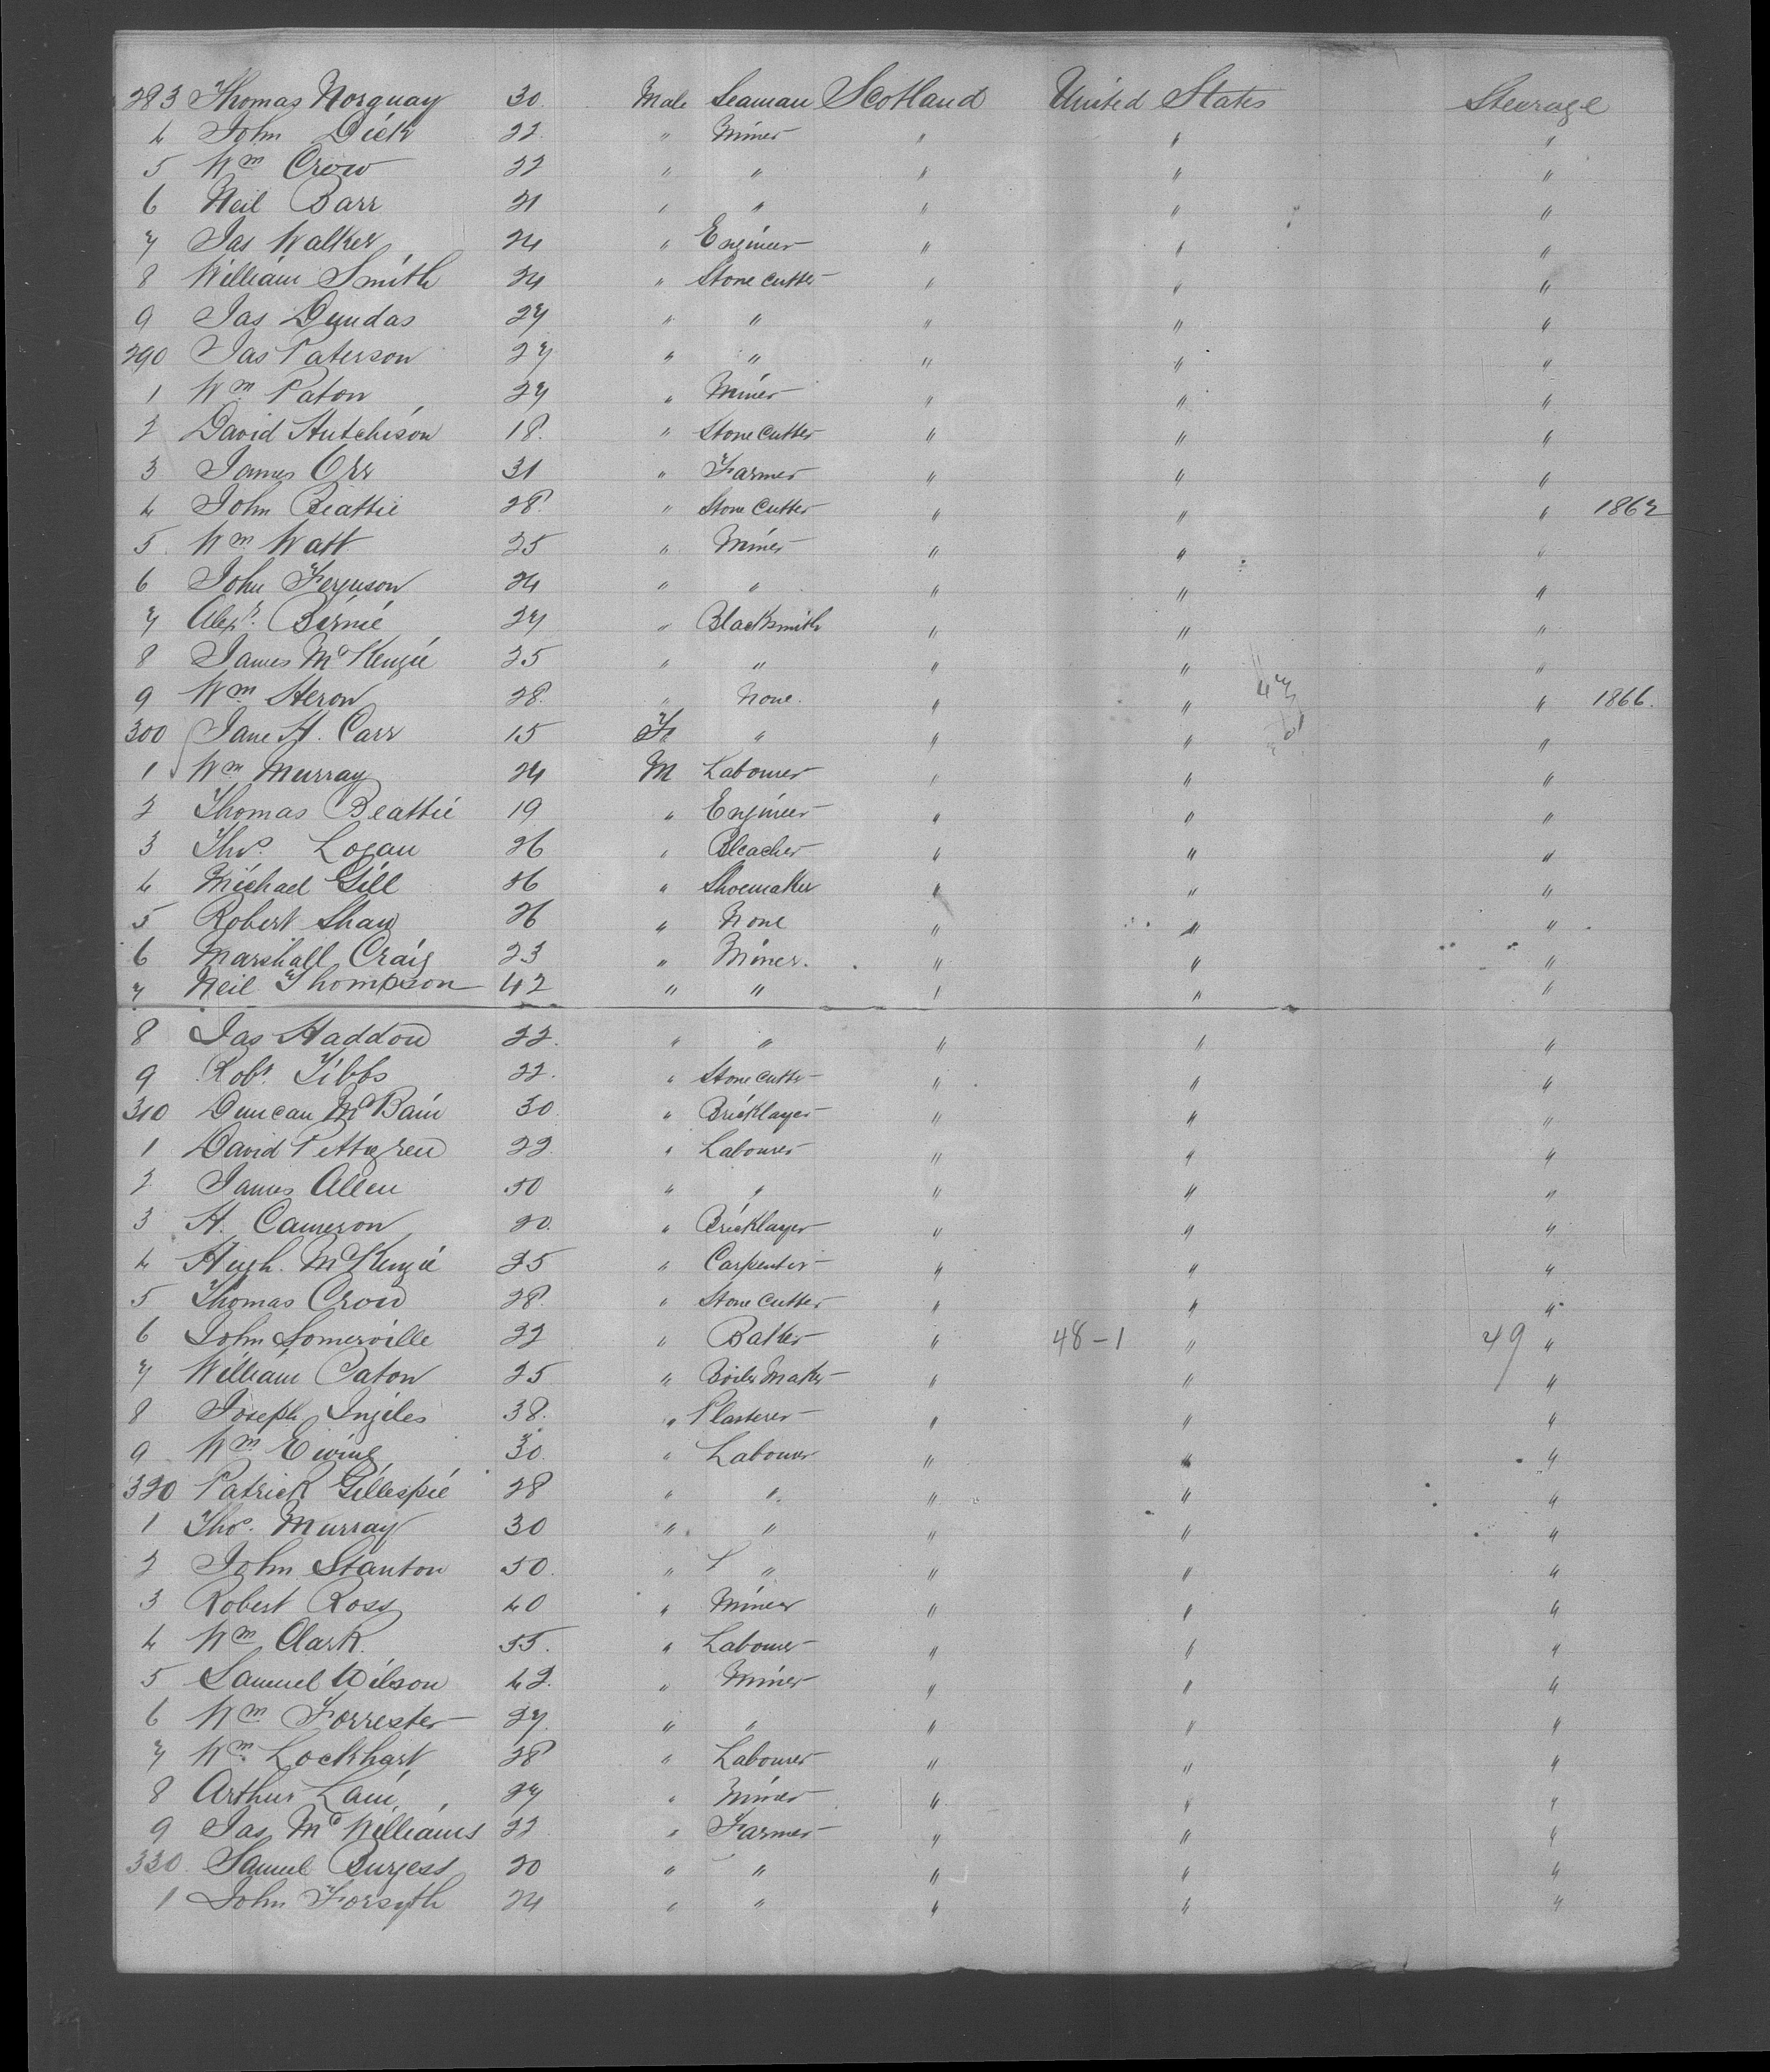 283 Thomas Norquay 30 Male Seaman Scotland United States Steerage
4 John Dick 22 " Miner " " "
5 Wm Crow 22 " " " " "
6 Neil Barr 21 " " " " "
7 Jas Walker 24 " Engineer " " "
8 William Smith 24 " Stone cutter " " "
9 Jas Dundas 27 " " " " "
290 Jas Paterson 27 " " " " "
1 Wm Paton 27 " Miner " " "
2 David Hutchison 18. " Stone cutter " " "
3 James Orr 31 " Farmer " " "
4 John Beattie 28. " Stone Cutter " " " 1862
5 Wm Watt 25 " Miner " " "
6 John Ferguson 24 " " " " "
7 Alexr. Birnie 27 " Blacksmith " " "
8 James McKenzie 25 " " " " "
9 Wm Heron 28. " None. " " " 1866.
300 Jane H. Carr 15 F. " " " "
1 Wm Murray 24 M Labourer " " "
2 Thomas Beattie 19 " Engineer " " "
3 Thos. Logan 26 " Bleacher " " "
4 Michael Gill 26 " Shoemaker " " "
5 Robert Shaw 26 " None " " "
6 Marshall Craig 23 " Miner. " " "
7 Neil Thompson 42 " " " " "
8 Jas Haddow 22. " " " " "
9 Robt. Tibbs 22. " Stone cutter " " "
310 Duncan McBain 30 " Bricklayer " " "
1 David Pettgrew 22. " Labourer " " "
2 James Allen 50 " " " " "
3 H. Cameron 20. " Bricklayer " " "
4 Hugh. McKenzie 25 " Carpenter " " "
5 Thomas Crow 28. " Stone Cutter " " "
6 John Somerville 22 " Baker " 48-1 " 49 "
7 William Paton 25 " Boiler Maker " " "
8 Joseph Ingiles 38. " Plasterer " " "
9 Wm Ewing 30. " Labourer " " "
320 Patrick Gillespie 28 " " " " "
1 Thos. Murray 30 " " " " "
2 John Stanton 50. " " " " "
3 Robert Ross 40 " Miner " " "
4 Wm Clark. 55. " Labourer " " "
5 Samuel Wilson 42. " Miner " " "
6 Wm Forrester 27. " " " " "
7 Wm Lockhart 28 " Labourer " " "
8 Arthur Lain 27 " Miner " " "
9 Jas McWilliams 22 " Farmer " " "
330. Samuel Burgess 20 " " " " "
1 John Forsyth 24 " " " " "